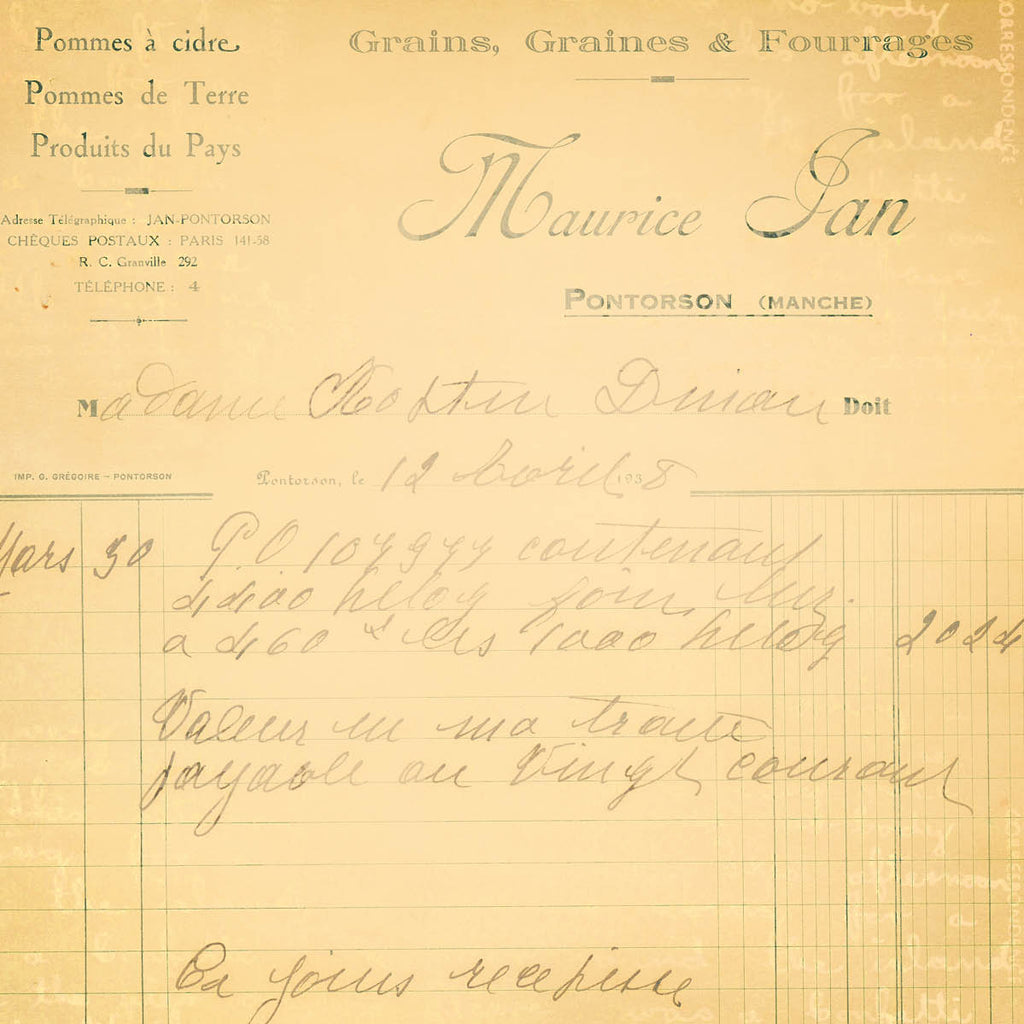 Pommes à cidre
Pommes de Terre
Produits du Pays
Adresse Télégraphique : JAN-PONTORSON
CHÈQUES POSTAUX : PARIS 141-58
R. C. Granville 292
TÉLÉPHONE : 4
Grains, Graines & Fourrages
Maurice Jan
PONTORSON (MANCHE)
Madame Dinan Doit
IMP. G. GRÉGOIRE - PONTORSON
Pontorson, le 12 Avril 1938
Mars 30 P.O. 107977 contenant
4400 foin
a 460 les 1000 2024
Valeur en ma traite
payable au Vingt courant
joins recepisse
no body
afternoon
for a
island
CORRESPONDENCE